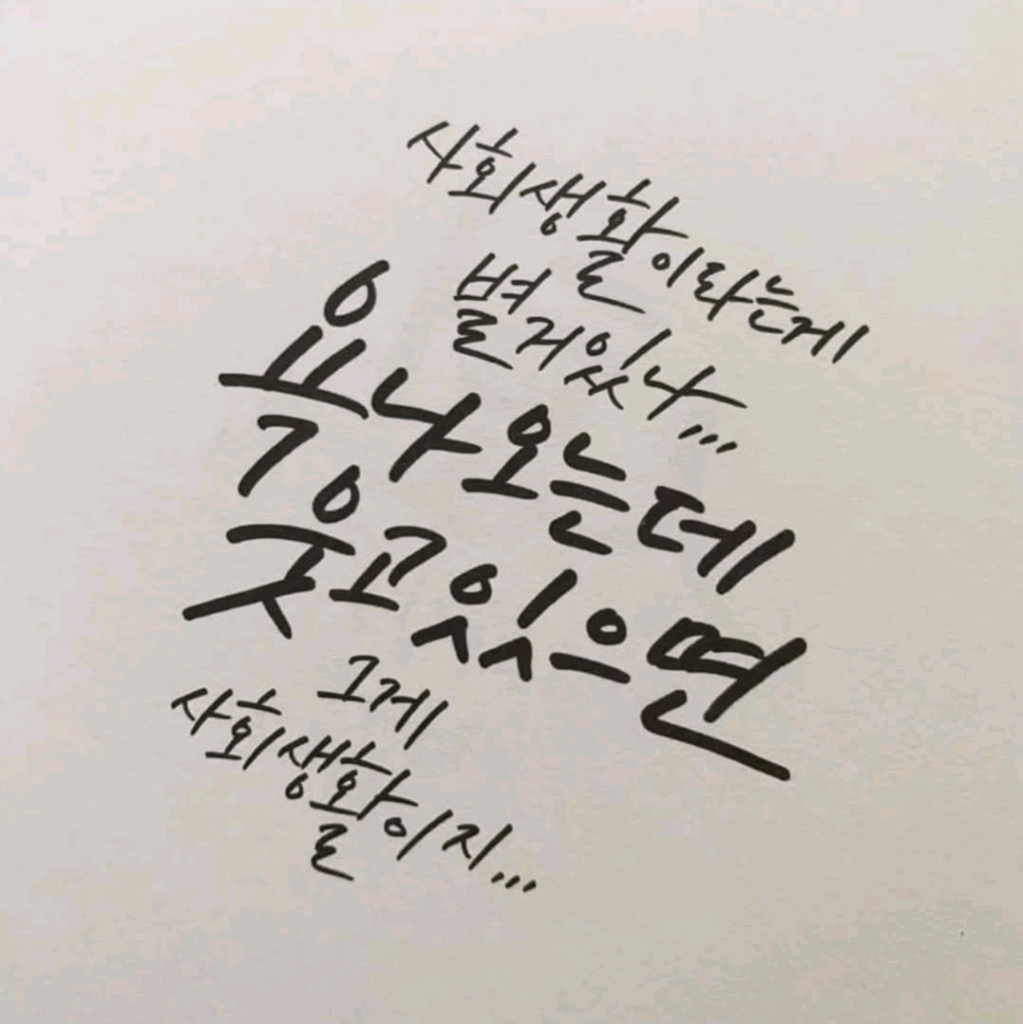 사회생활이라는게
별거있나...
욕나오는데
웃고있으면
그게
사회생활이지...